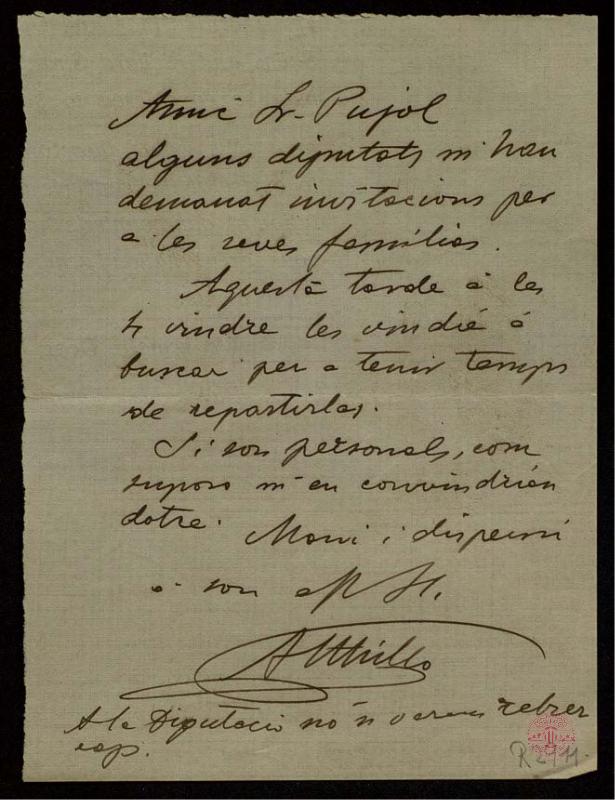 Amic Sr. Pujol
alguns diputats m'han
demanat invitacions per
a les seves famílias.
Aquesta tarde á les
4 vindre les vindré á
buscar per a tenir temps
de repartirlas.
Si son personals, com
suposo m'en convindrían
dotze. Mani i dispensi
a son
A la Diputació no'n varem rebrer
cap.